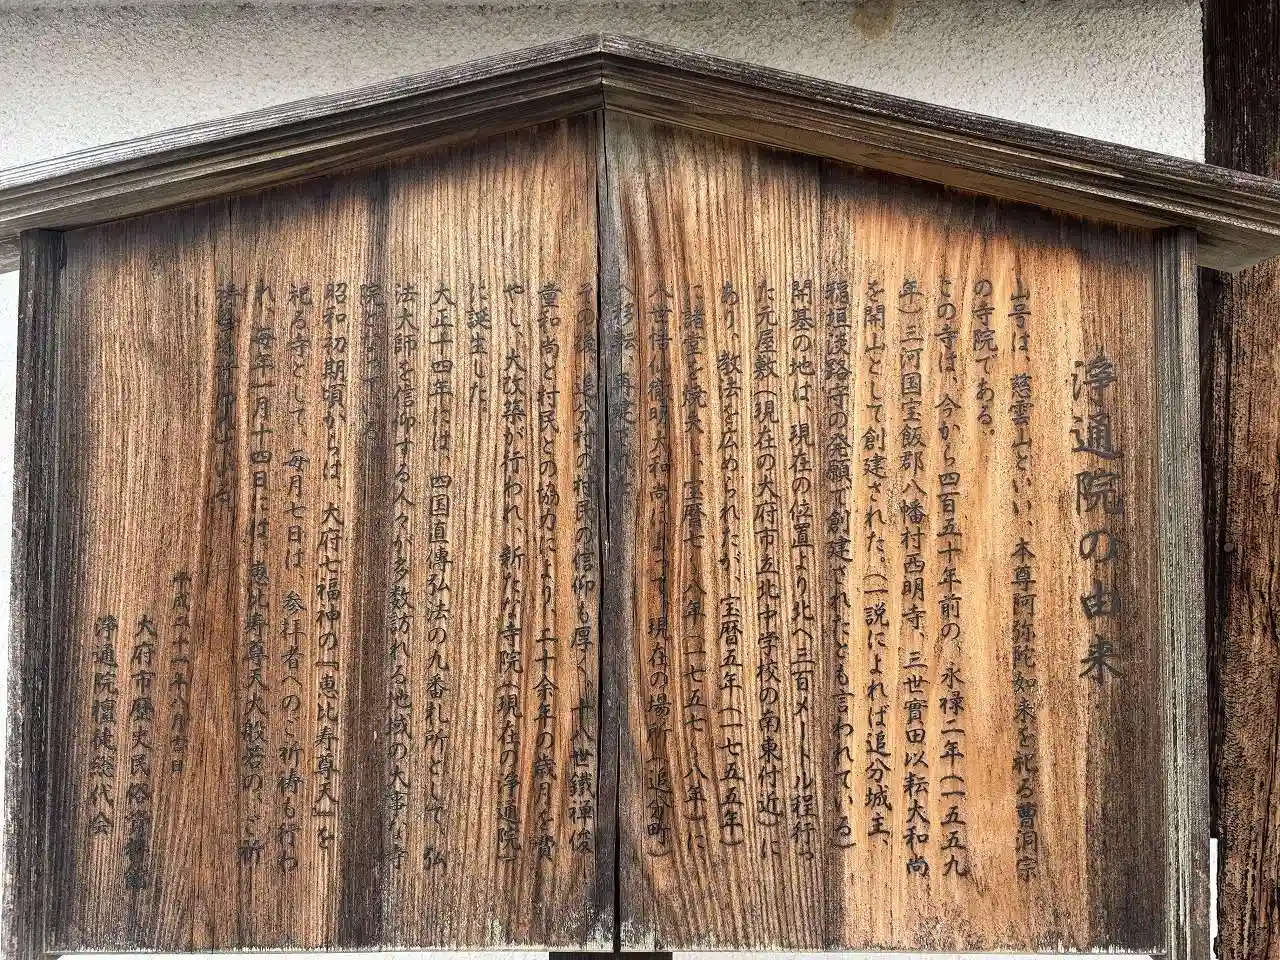 浄通院の由来
山号は、慈雲山といい、本尊阿弥陀如来を祀る曹洞宗
の寺院である。
この寺は、今から四百五十年前の、永禄二年(一五五九
年)三河国宝飯郡八幡村西明寺、三世實田以耘大和尚
を開山として創建された。(一説によれば追分城主、
稲垣淡路守の発願で創建されたとも言われている)
開基の地は、現在の位置より北へ三百メートル程行っ
た元屋敷(現在の大府市立北中学校の南東付近)に
あり、教法を広められたが、宝暦五年(一七五五年)
に諸堂を焼失し、宝暦七~八年(一七五七~八年)に
八世悟仙衛明大和尚によって現在の場所(追分町)
へ移転、再建された。
その後、追分村の村民の信仰も厚く、十八世鐵禅俊
童和尚と村民との協力により、二十余年の歳月を費
やし、大改築が行われ、新たな寺院(現在の浄通院)
に誕生した。
大正十四年には、四国直傳弘法の九番札所として、弘
法大師を信仰する人々が多数訪れる地域の大事な寺
院となっている。
昭和初期頃からは、大府七福神の「恵比寿尊天」を
祀る寺として、毎月七日は、参拝者へのご祈祷も行わ
れ、毎年一月十四日には、恵比寿尊天大般若の、ご祈
平成二十一年八月吉日
大府市歴史民俗資料館
浄通院檀徒総代会